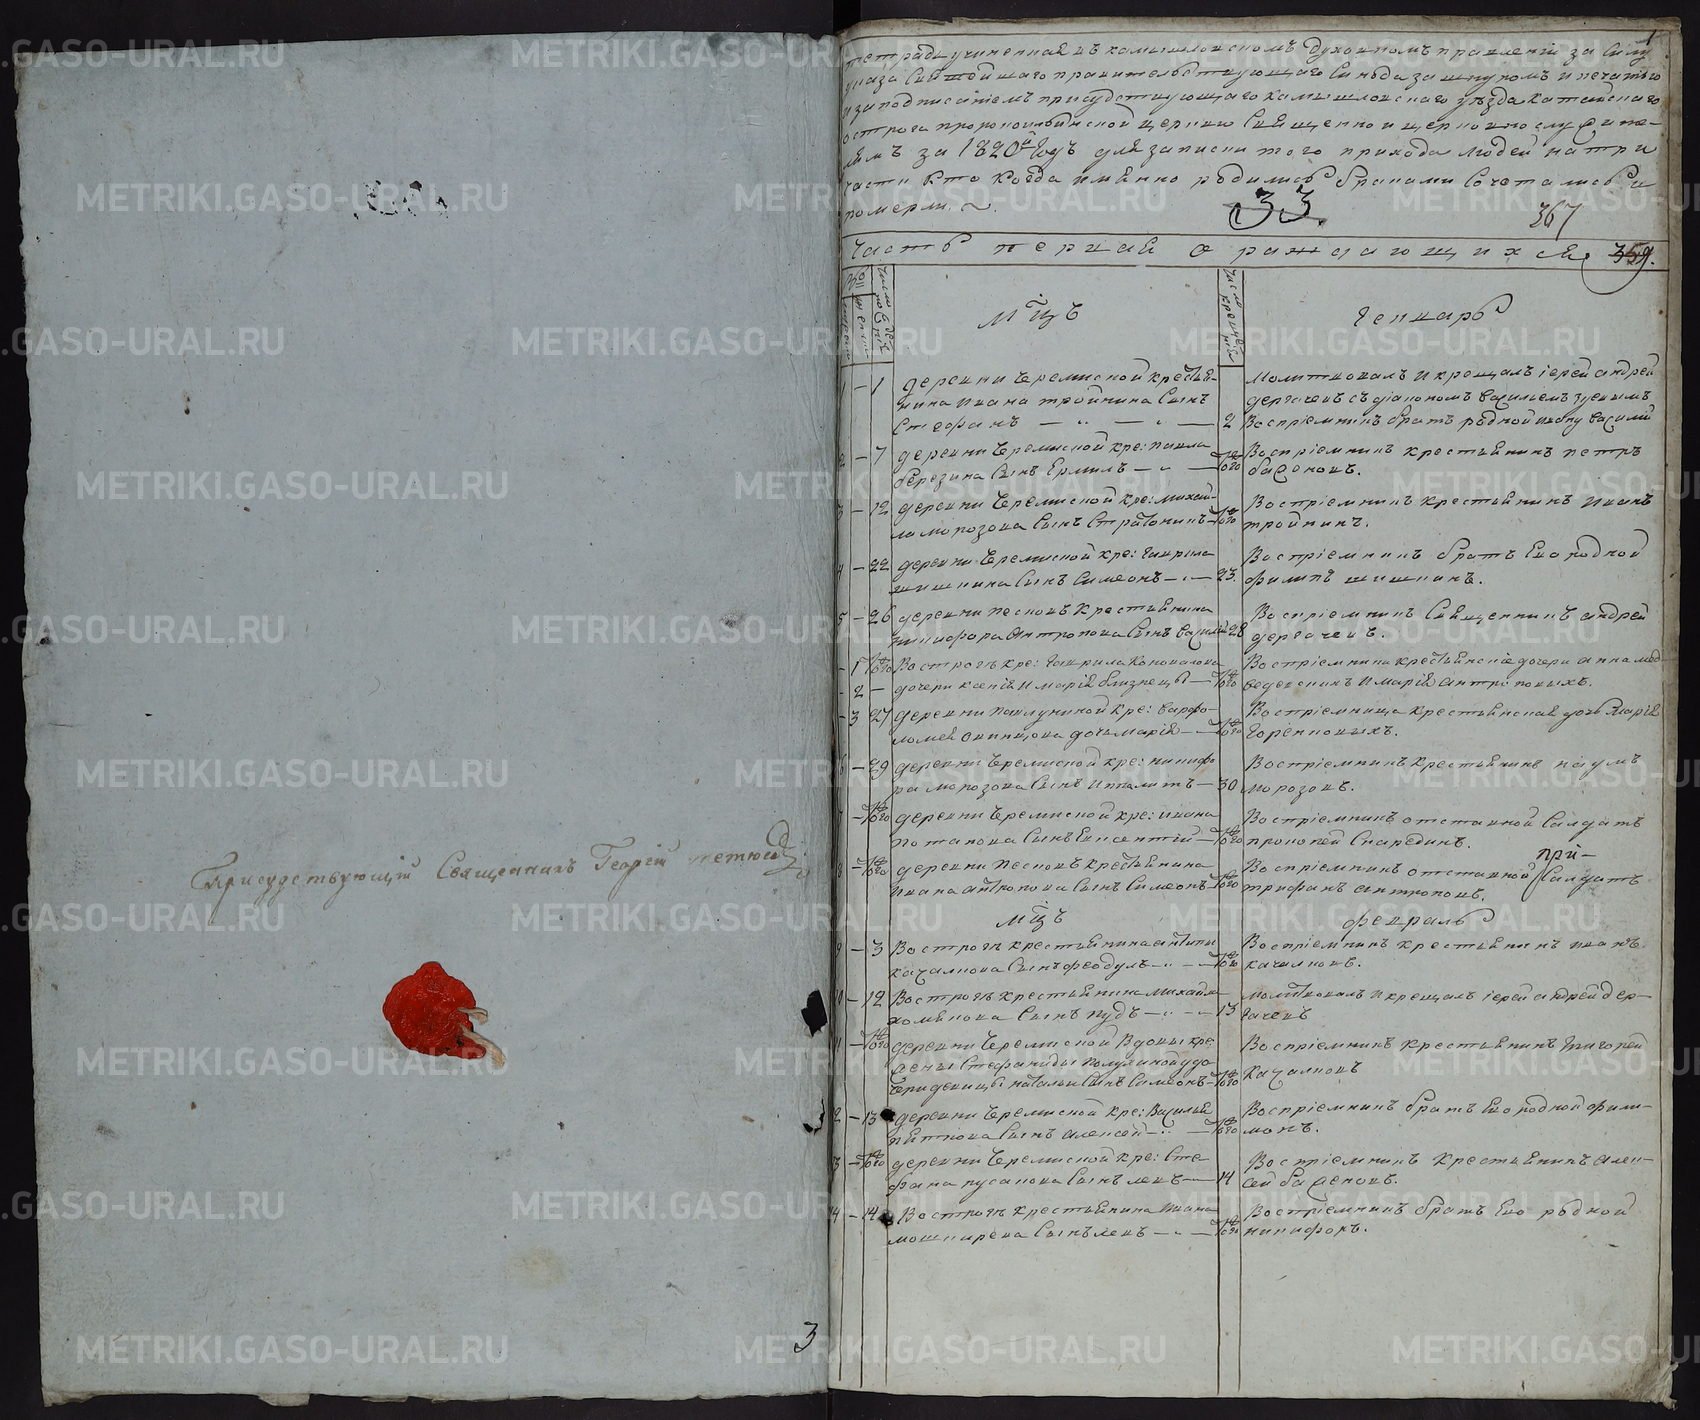 Присудствующій Священникъ Георгій
3
1
тетрадь учиненная въ камышловскомъ Духовномъ правленіи за Силу
указа Святейшаго правительствующаго Синода за шнуромъ и печатью
и заподписаніемъ присудствующаго камышловскаго уѣзда катайскаго
острога пророкоильинской церкви Священно и церковно служите-
лямъ за 1820й Годъ для записки того прихода людей на три
части кто когда имянно родились браками Сочетались и
померли.
33.
367
Часть первая о раждающихся.
359.
Мцъ
Генварь
1 — 1 деревни Черемисской крестья-
нина Ивана тройнина Сынъ
Стефанъ — 2
Молитвовалъ и крещалъ іерей андрей
дергачевъ съ діакономъ василіемъ
Воспріемникъ братъ родной ивану василий
2 — 7 деревни Черемиской кре: павла
березина Сынъ Ермилъ —
Воспріемникъ крестьянинъ петръ
3 — 12 деревни Черемиской кре: михаи-
ла морозова Сынъ Стратоникъ
Воспріемникъ крестьянинъ Иванъ
тройнинъ.
4 — 22 деревни Черемиской кре: Гаврила
шишкина Сынъ Симеонъ — 23.
Воспріемникъ братъ Его родной
филипъ шишкинъ.
5 — 26 деревни песковъ крестьянина
никифора антропова Сынъ василий 28
Воспріемникъ Священникъ андрей
дергачевъ.
1 Вострогѣ кре: Гаврила Коновалова
2 — дочери ксенія и марія близнецы —
Воспріемники крестьянскіе дочери анна мед-
ведевскихъ и марія антроповыхъ.
3 27 деревни Павлуниной кре: варфо-
ломея овчинцова дочь марія —
Воспріемница крестьянская дочь Марія
Горенковыхъ.
6 — 29 деревни Черемиской кре: никифо-
ра морозова Сынъ ипполитъ — 30
Воспріемникъ крестьянинъ наумъ
морозовъ.
деревни Черемиской кре: ивана
потапова Сынъ Евсентий —
Воспріемникъ отставной Салдатъ
прокопей Спиридинъ.
8 деревни песковъ крестьянина
Ивана антропова Сынъ Симеонъ
Воспріемникъ отставной Салдатъ
трифанъ антроповъ.
Мцъ
февраль
9 — 3 Вострогѣ крестьянина антипы
качалкова Сынъ феодулъ —
Воспріемникъ крестьянинъ иванъ
качалковъ.
10 — 12 Вострогѣ крестьянина михайла
хомякова Сынъ пудъ — 13
молитвовалъ и крещалъ іерей андрей дер-
гачевъ
11 деревни Черемиской Вдовы кре
Стефаниды
натальи Сынъ Симеонъ
Воспріемникъ крестьянинъ Григорей
качалковъ
12 — 13 деревни Черемиской кре: Василья
пяткова Сынъ алексей —
Воспріемникъ братъ Его родной фили-
монъ.
13 деревни Черемиской кре: Сте-
фана русакова Сынъ левъ — 14
Воспріемникъ крестьянинъ алек-
сей
14 — 14 Вострогѣ крестьянина ивана
мошкарева Сынъ левъ —
Воспріемникъ братъ Его родной
никифоръ.
METRIKI.GASO-URAL.RU